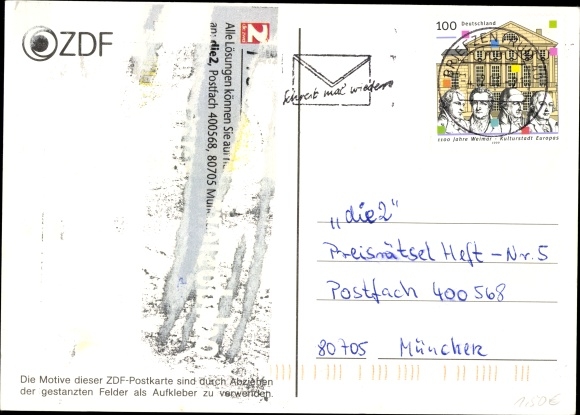 ZDF
Alle Lösungen können Sie auf
an: die2, Postfach 400568, 80705 Mün
schreib mal wieder
100 Deutschland
BRIEFZEN
1100 Jahre Weimar - Kulturstadt Europas
1999
„die2“
Preisrätsel Heft - Nr. 5
Postfach 400568
80705 München
Die Motive dieser ZDF-Postkarte sind durch Abziehen
der gestanzten Felder als Aufkleber zu verwenden.
1,50 €